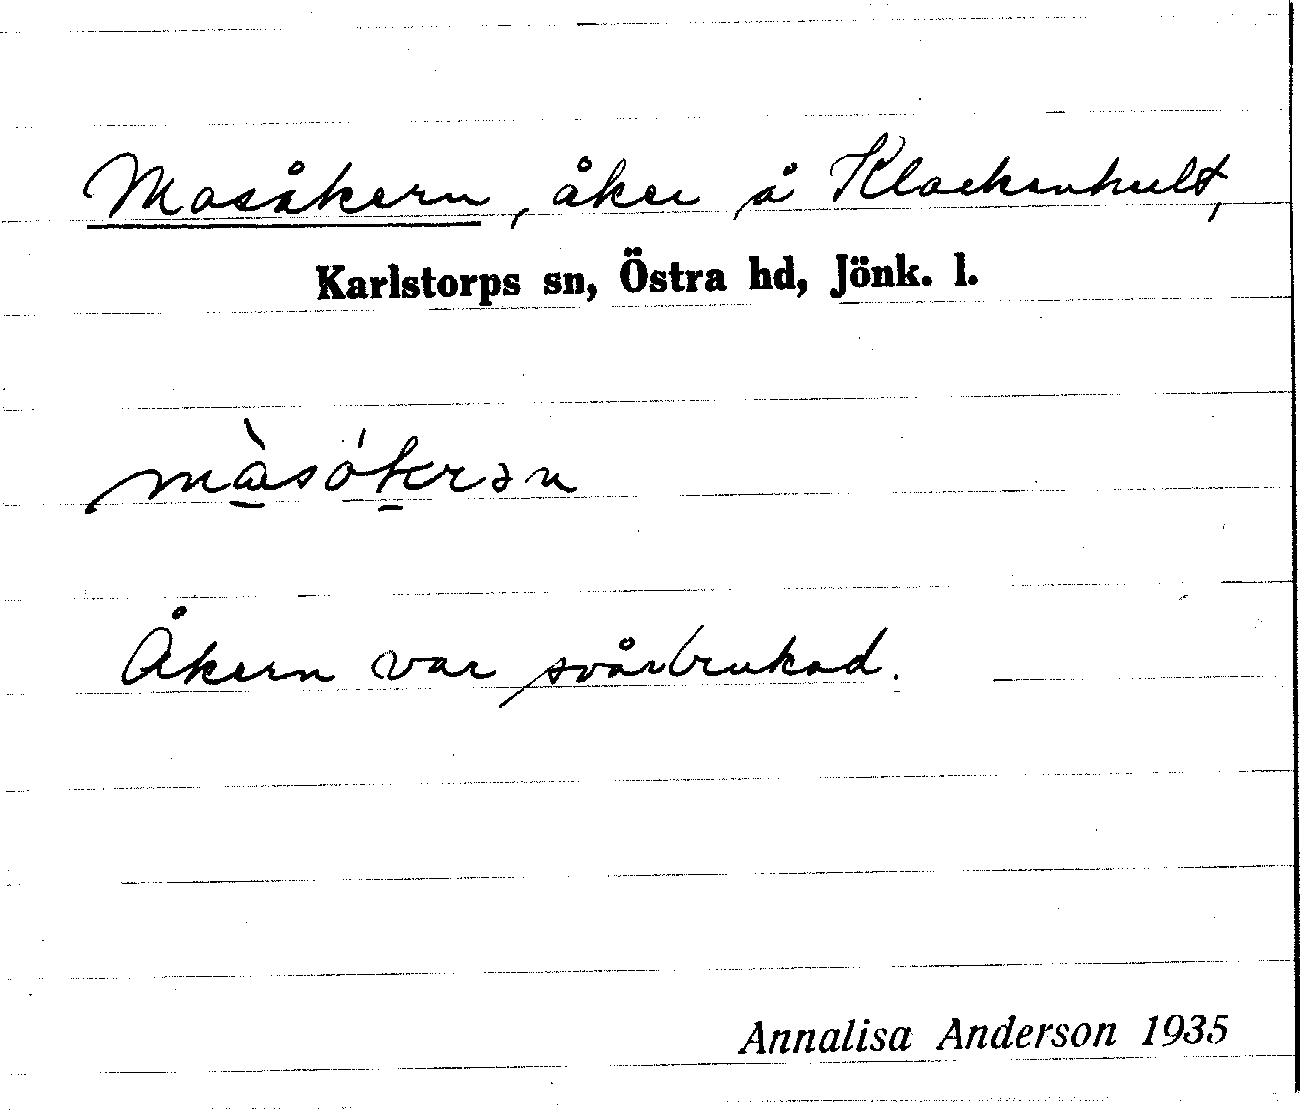 Masåkern, åker å Klackenhult,
Karlstorps sn, Östra hd, Jönk. l.
Åkern var svårbrukad.
Annalisa Anderson 1935